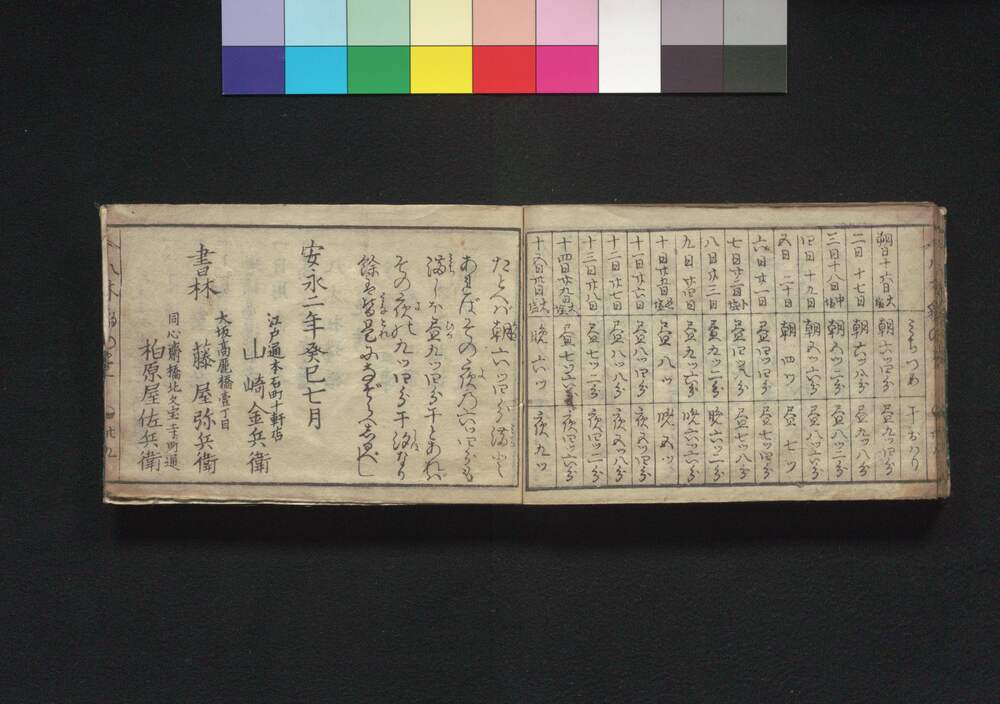 みちつめ 干おハり
朔日 十六日 大塩 朝六ツ四分 昼九ツ四分
二日 十七日 朝六ツ八分 昼九ツ八分
三日 十八日 中塩 朝五ツ二分 昼八ツ二分
四日 十九日 朝五ツ六分 昼八ツ六分
五日 二十日 朝四ツ 昼七ツ
六日 廿一日 昼四ツ四分 昼七ツ四分
七日 廿二日 小塩 昼四ツ八分 昼七ツ八分
八日 廿三日 昼九ツ二分 晩六ツ二分
九日 廿四日 昼九ツ六分 晩六ツ六分
十日 廿五日 昼八ツ 晩五ツ
十一日 廿六日 昼八ツ四分 夜五ツ四分
十二日 廿七日 昼八ツ八分 夜五ツ八分
十三日 廿八日 昼七ツ二分 夜四ツ二分
十四日 廿九日 大塩 昼七ツ六分 夜四ツ六分
十五日 卅日 大塩 晩六ツ 夜九ツ
たとへハ朝六ツ四分満と
あればその夜乃六ツ四分も
満しほ昼九ツ四分干とあれバ
その夜も九ツ四分干汐なり
餘ハ皆是になぞらへしるべし
安永二年癸巳七月
江戸通本石町十軒店
山崎金兵衛
書林
大坂高麗橋壹丁目
藤屋弥兵衛
同心齋橋北久宝寺町通
柏原屋佐兵衛